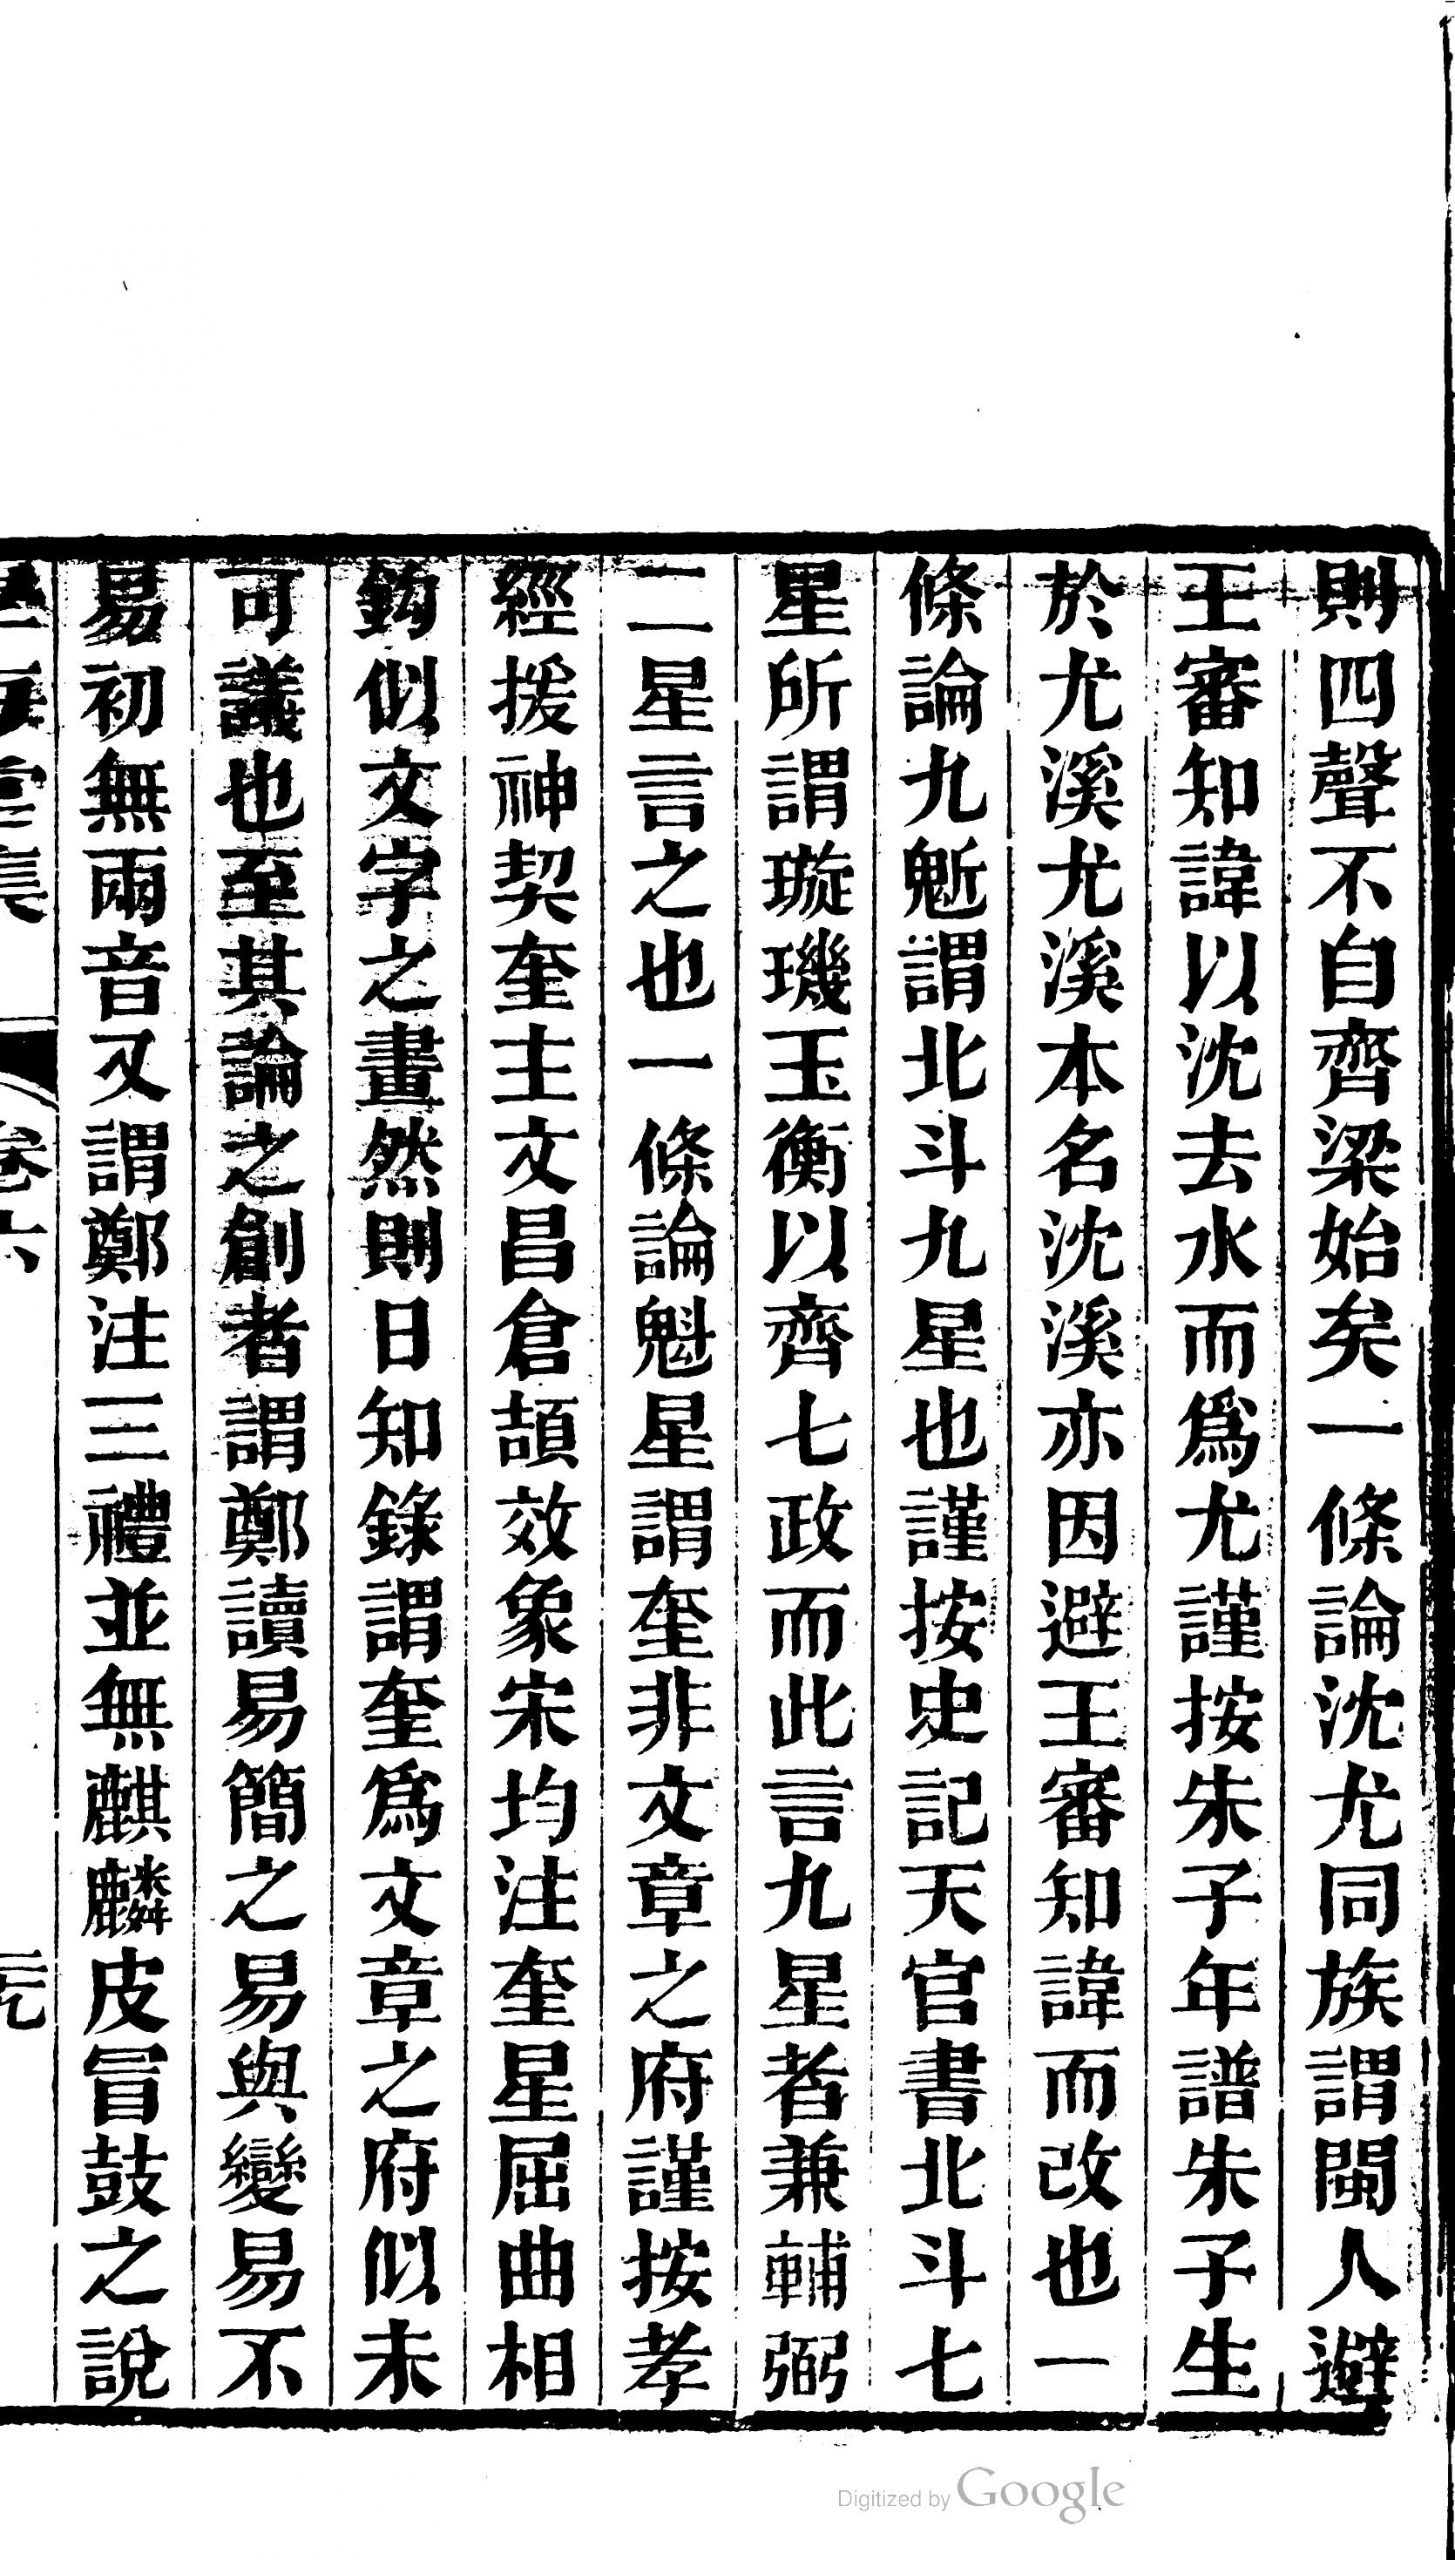 則四聲不自齊梁始矣一條論沈尤同族謂閩人避
王審知諱以沈去水而爲尤謹按朱子年譜朱子生
於尤溪尤溪本名沈溪亦因避王審知諱而改也一
條論九魁謂北斗九星也謹按史記天官書北斗七
星所謂璇璣玉衡以齊七政而此言九星者兼輔弼
二星言之也一條論魁星謂奎非文章之府謹按孝
經援神契奎主文昌倉頡效象宋均注奎星屈曲相
鉤似文字之畫然則日知錄謂奎爲文章之府似未
可議也至其論之創者謂鄭讀易簡之易與變易不
易初無兩音又謂鄭注三禮並無麒麟皮冒鼓之說
卷六
Digitized by Google